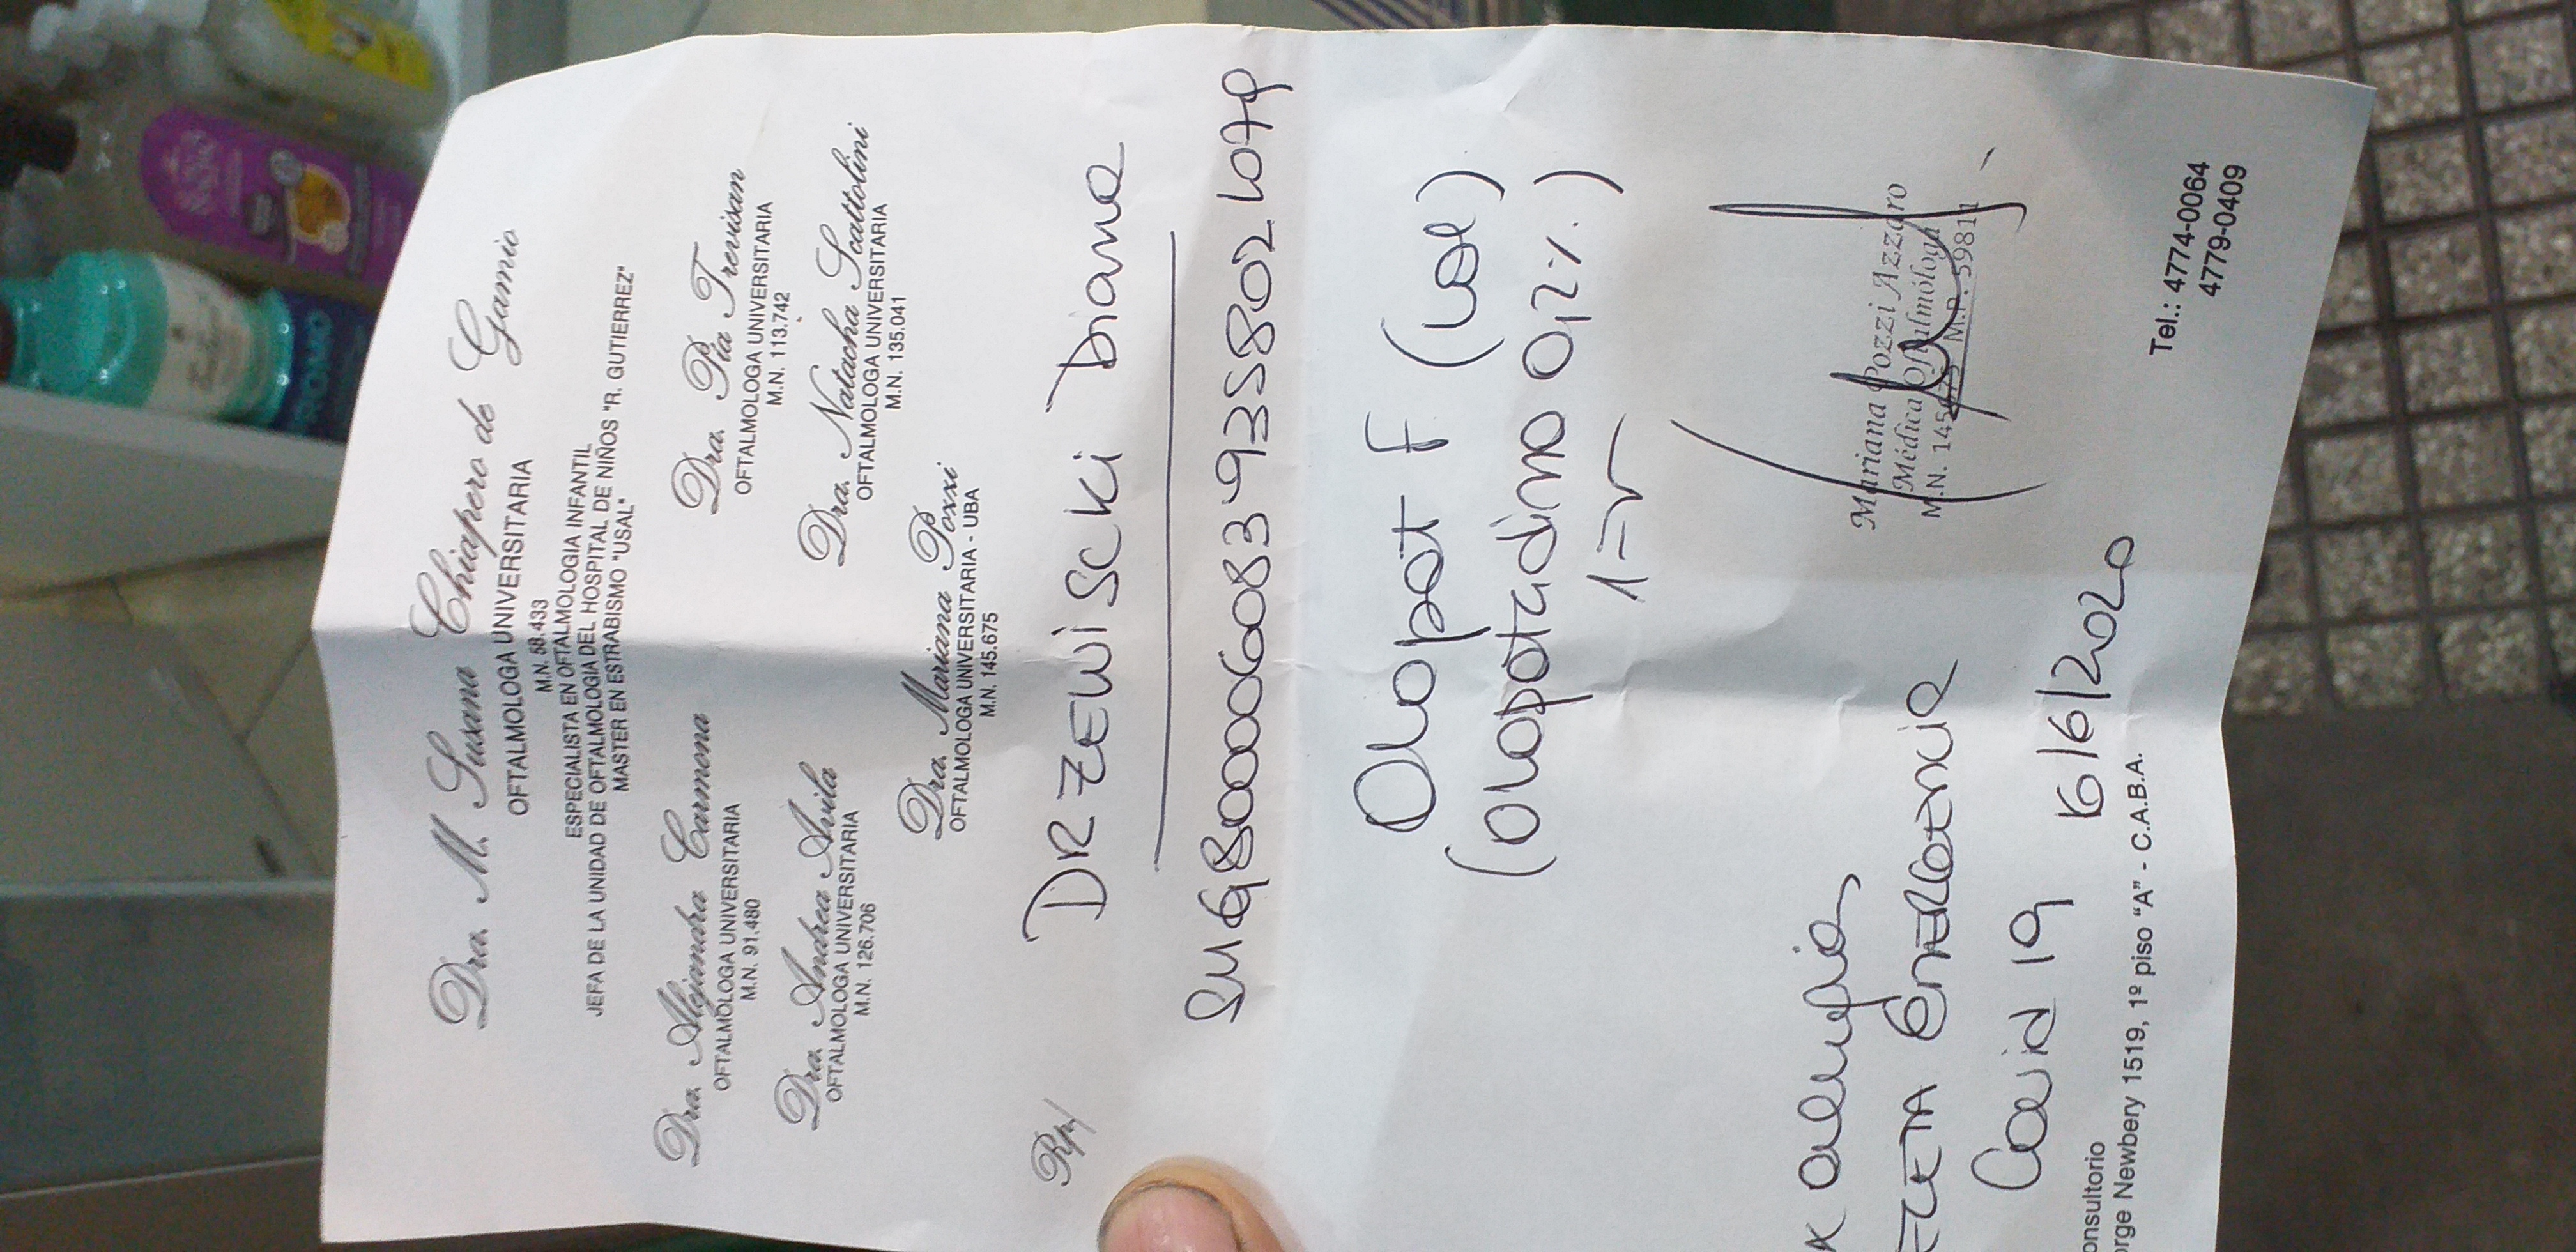 PROMO
Dra. M. Susana Chiapero de Gamio
OFTALMOLOGA UNIVERSITARIA
M.N. 58.433
ESPECIALISTA EN OFTALMOLOGIA INFANTIL
JEFA DE LA UNIDAD DE OFTALMOLOGIA DEL HOSPITAL DE NIÑOS "R. GUTIERREZ"
MASTER EN ESTRABISMO "USAL"
Dra. Alejandra Carmona
OFTALMOLOGA UNIVERSITARIA
M.N. 91.480
Dra. Pia Trevisan
OFTALMOLOGA UNIVERSITARIA
M.N. 113.742
Dra. Andrea Avila
OFTALMOLOGA UNIVERSITARIA
M.N. 126.706
Dra. Natacha Scattolini
OFTALMOLOGA UNIVERSITARIA
M.N. 135.041
Dra. Mariana Pozzi
OFTALMOLOGA UNIVERSITARIA - UBA
M.N. 145.675
Rp/
DRZEWISCKi Diana
Olopat F (Loe)
(Olopotadino 0,2%.)
x alergias
ECETA EMERGENCIA
Covid 19
16/6/2020
Mariana Pozzi Azzaro
Médica Oftalmóloga
M.N. 145675 M.P. 59811
onsultorio
orge Newbery 1519, 1º piso "A" - C.A.B.A.
Tel.: 4774-0064
4779-0409